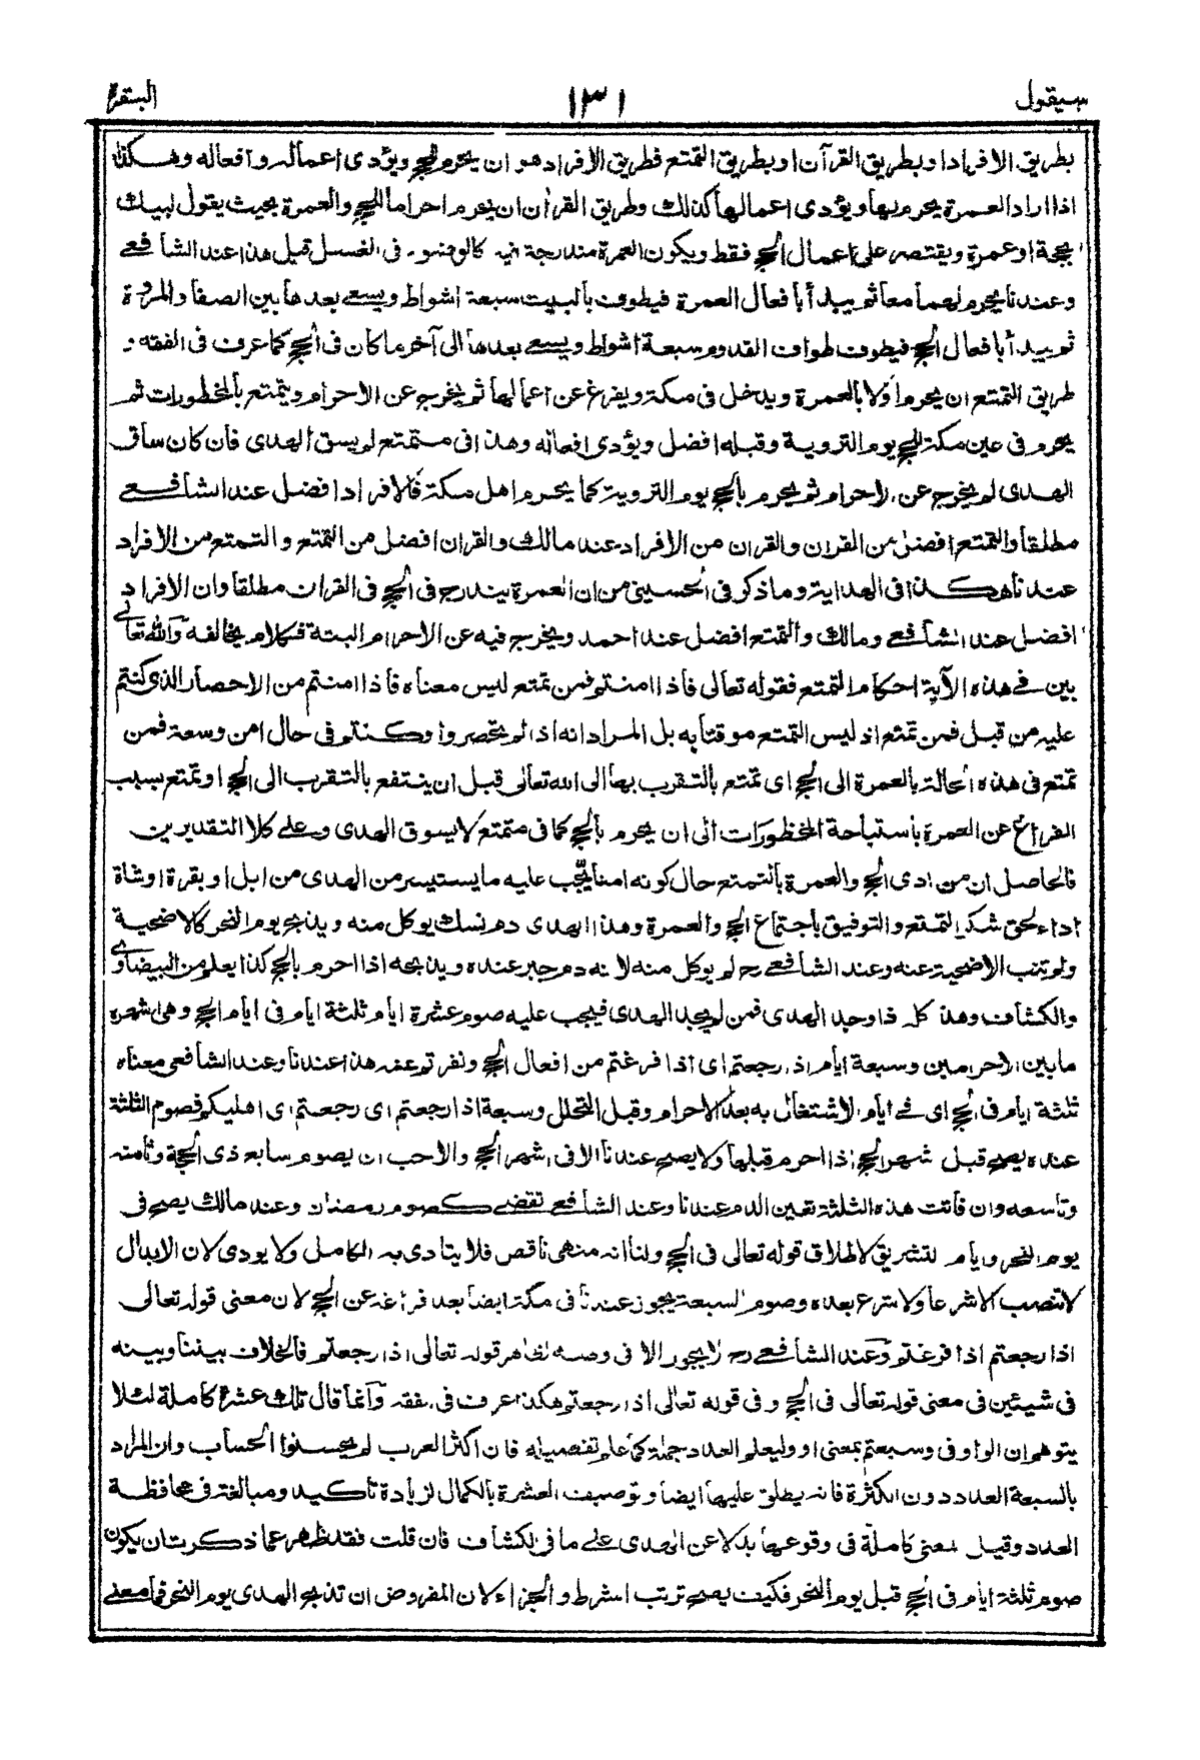 سيقول ١٣١ البقرة
بطريق الافراد او بطريق القرآن او بطريق التمتع فطريق الافراد هو ان يحرم للحج ويؤدى اعماله وافعاله وهكذا
اذا اراد العمرة يحرم بها ويؤدى اعمالها كذلك وطريق القرٰان ان يحرم احراما للحج والعمرة بحيث يقول لبيك
بحجة او عمرة ويقتصر على اعمال الحج فقط ويكون العمرة مندرجة فيه كالوضوء فى الغسل قبل هذا عند الشافعے
وعندنا يحرم لهما معا ثم يبدأ بافعال العمرة فيطوف بالبيت سبعة اشواط ويسعے بعدها بين الصفا والمروة
ثم يبدأ بافعال الحج فيطوف طواف القدوم سبعة اشواط ويسعے بعدها الى آخر ما كان فى الحج كما عرف فى الفقه و
طريق التمتع ان يحرم اولا بالعمرة ويدخل فى مكة ويفرغ عن اعمالها ثم يخرج عن الاحرام ويتمتع بالمحظورات ثم
يحرم فى عين مكة للحج يوم التروية وقبله افضل ويؤدى افعاله وهذا فى متمتع لم يسق الهدى فان كان ساق
الهدى لم يخرج عن الاحرام ثم يحرم بالحج يوم التروية كما يحرم اهل مكة فالافراد افضل عند الشافعے
مطلقا والتمتع افضل من القران والقران من الافراد عند مالك والقران افضل من التمتع و التمتع من الافراد
عندنا هكذا فى الهداية وما ذكر فى الحسينى من ان العمرة يندرج فى الحج فى القران مطلقا وان الافراد
افضل عند الشافعے ومالك والتمتع افضل عند احمد ويخرج فيه عن الاحرام البتة فكلام يخالفه والله تعالے
بين فے هذه الآية احكام التمتع فقوله تعالى فاذا امنتم فمن تمتع ليس معناه فاذا امنتم من الاحصار الذى كنتم
عليه من قبل فمن تمتع اذ ليس التمتع موقتا به بل المراد انه اذا لم يحصروا وكنتم فى حال امن وسعة فمن
تمتع فى هذه الحالة بالعمرة الى الحج اى تمتع بالتقرب بها الى الله تعالى قبل ان ينتفع بالتقرب الى الحج او تمتع بسبب
الفراغ عن العمرة باستباحة المحظورات الى ان يحرم بالحج كما فى متمتع لا يسوق الهدى وعلے كلا التقديرين
فالحاصل ان من ادى الحج والعمرة بالتمتع حال كونه امنا يجب عليه ما يستيسر من الهدى من ابل او بقرة او شاة
اداء لحق شكر التمتع والتوفيق باجتماع الحج والعمرة وهذا الهدى دم نسك يوكل منه ويذبح يوم النحر كالاضحية
ولم تنب الاضحية عنه وعند الشافعے رح لم يوكل منه لانه دم جبر عنده ويذبحه اذا احرم بالحج كذا يعلم من البيضاوے
والكشاف وهذا كله اذا وجد الهدى فمن لم يجد الهدى فيجب عليه صوم عشرة ايام ثلثة ايام فى ايام الحج وهى اشهره
ما بين الاحرامين وسبعة ايام اذا رجعتم اى اذا فرغتم من افعال الحج ونفرتم عنه هذا عندنا وعند الشافعى معناه
ثلثة ايام فى الحج اى فے ايام الاشتغال به بعد الاحرام وقبل التحلل وسبعة اذا رجعتم اى رجعتم اى اهليكم فصوم الثلثة
عنده يصح قبل شهر الحج اذا احرم قبلها ولا يصح عندنا الا فى اشهر الحج والاحب ان يصوم سابع ذى الحجة وثامنه
وتاسعه وان فاتت هذه الثلثة تعين الدم عندنا وعند الشافعے تقضے كصوم رمضان وعند مالك يصح فى
يوم النحر وايام التشريق لاطلاق قوله تعالى فى الحج ولنا انه منهى ناقص فلا يتادى به الكامل ولا يودى لان الابدال
لا تنصب الا شرعا ولا شرع بعده وصوم السبعة يجوز عندنا فى مكة ايضا بعد فراغه عن الحج لان معنى قوله تعالى
اذا رجعتم اذا فرغتم وعند الشافعے رح لا يجوز الا فى وطنه لظاهر قوله تعالى اذا رجعتم فالخلاف بيننا وبينه
فى شيئين فى معنى قوله تعالى فى الحج و فى قوله تعالى اذا رجعتم هكذا عرف فى الفقه وانما قال تلك عشرة كاملة لئلا
يتوهم ان الواو فى وسبعة بمعنى او وليعلم العدد جملة كما علم تفصيلا فان اكثر العرب لم يحسنوا الحساب وان المراد
بالسبعة العدد دون الكثرة فانه يطلق عليها ايضا وتوصيف العشرة بالكمال لزيادة تاكيد ومبالغة فى محافظة
العدد وقيل بمعنى كاملة فى وقوعها بدلا عن الهدى علے ما فى الكشاف فان قلت فقد ظهر عما ذكرت ان يكون
صوم ثلثة ايام فى الحج قبل يوم النحر فكيف يصح ترتب الشرط والجزاء لان المفروض ان تذبح الهدى يوم النحر فما معنے